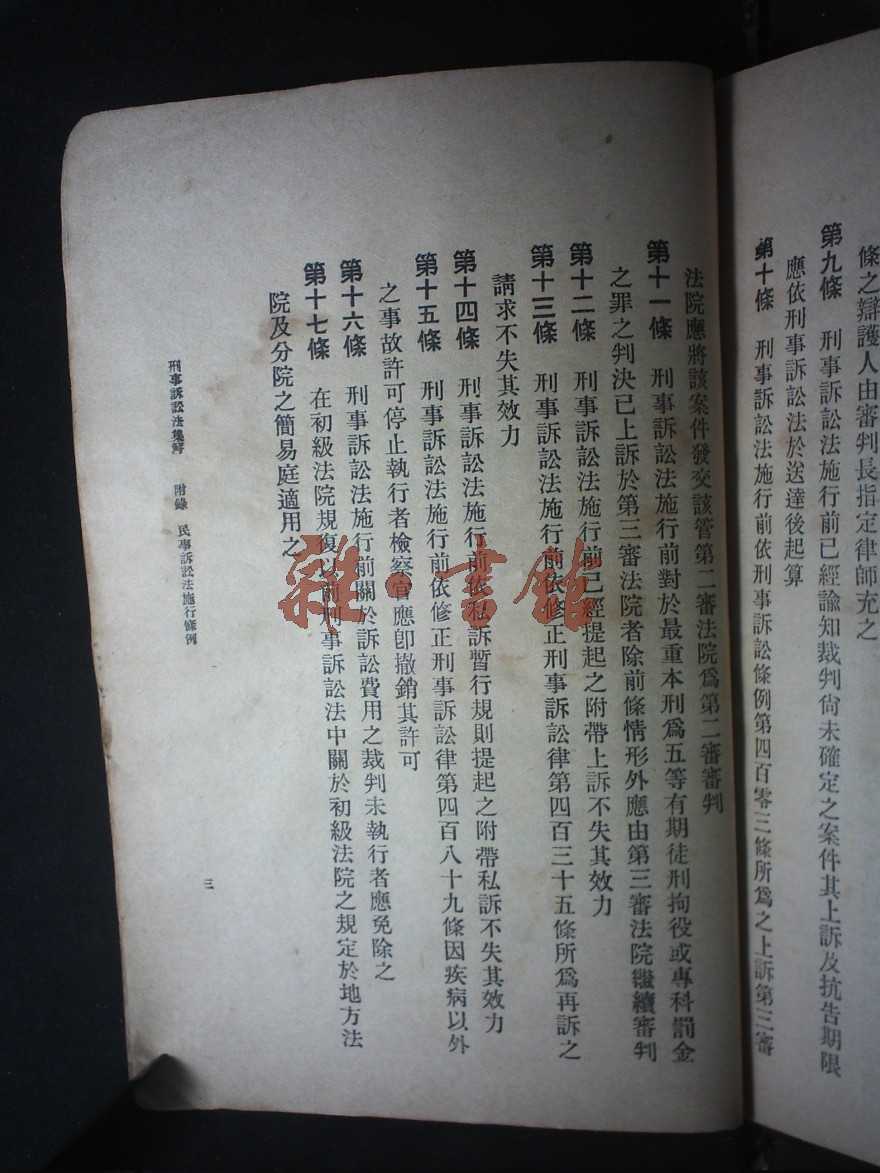 條之辯護人由審判長指定律師充之
第九條　刑事訴訟法施行前已經諭知裁判尙未確定之案件其上訴及抗告期限
應依刑事訴訟法於送達後起算
第十條　刑事訴訟法施行前依刑事訴訟條例第四百零三條所爲之上訴第三審
法院應將該案件發交該管第二審法院爲第二審審判
第十一條　刑事訴訟法施行前對於最重本刑爲五等有期徒刑拘役或專科罰金
之罪之判決已上訴於第三審法院者除前條情形外應由第三審法院繼續審判
第十二條　刑事訴訟法施行前已經提起之附帶上訴不失其效力
第十三條　刑事訴訟法施行前依修正刑事訴訟律第四百三十五條所爲再訴之
請求不失其效力
第十四條　刑事訴訟法施行前依私訴暫行規則提起之附帶私訴不失其效力
第十五條　刑事訴訟法施行前依修正刑事訴訟律第四百八十九條因疾病以外
之事故許可停止執行者檢察官應卽撤銷其許可
第十六條　刑事訴訟法施行前關於訴訟費用之裁判未執行者應免除之
第十七條　在初級法院規復以前刑事訴訟法中關於初級法院之規定於地方法
院及分院之簡易庭適用之
刑事訴訟法集解　附錄　民事訴訟法施行條例　三
雜·書館